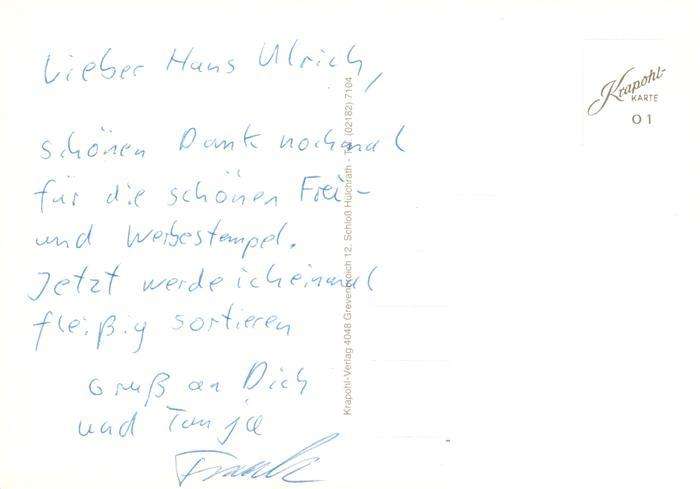 Lieber Hans Ulrich,
schönen Dank nochmal
für die schönen Frei-
und Werbestempel.
Jetzt werde ich einmal
fleißig sortieren
Gruß an Dich
und Tanja
Frank
Krapohl-Verlag 4048 Grevenbroich 12, Schloß Hülchrath - Tel. (02182) 7104
Krapohl-
KARTE
01